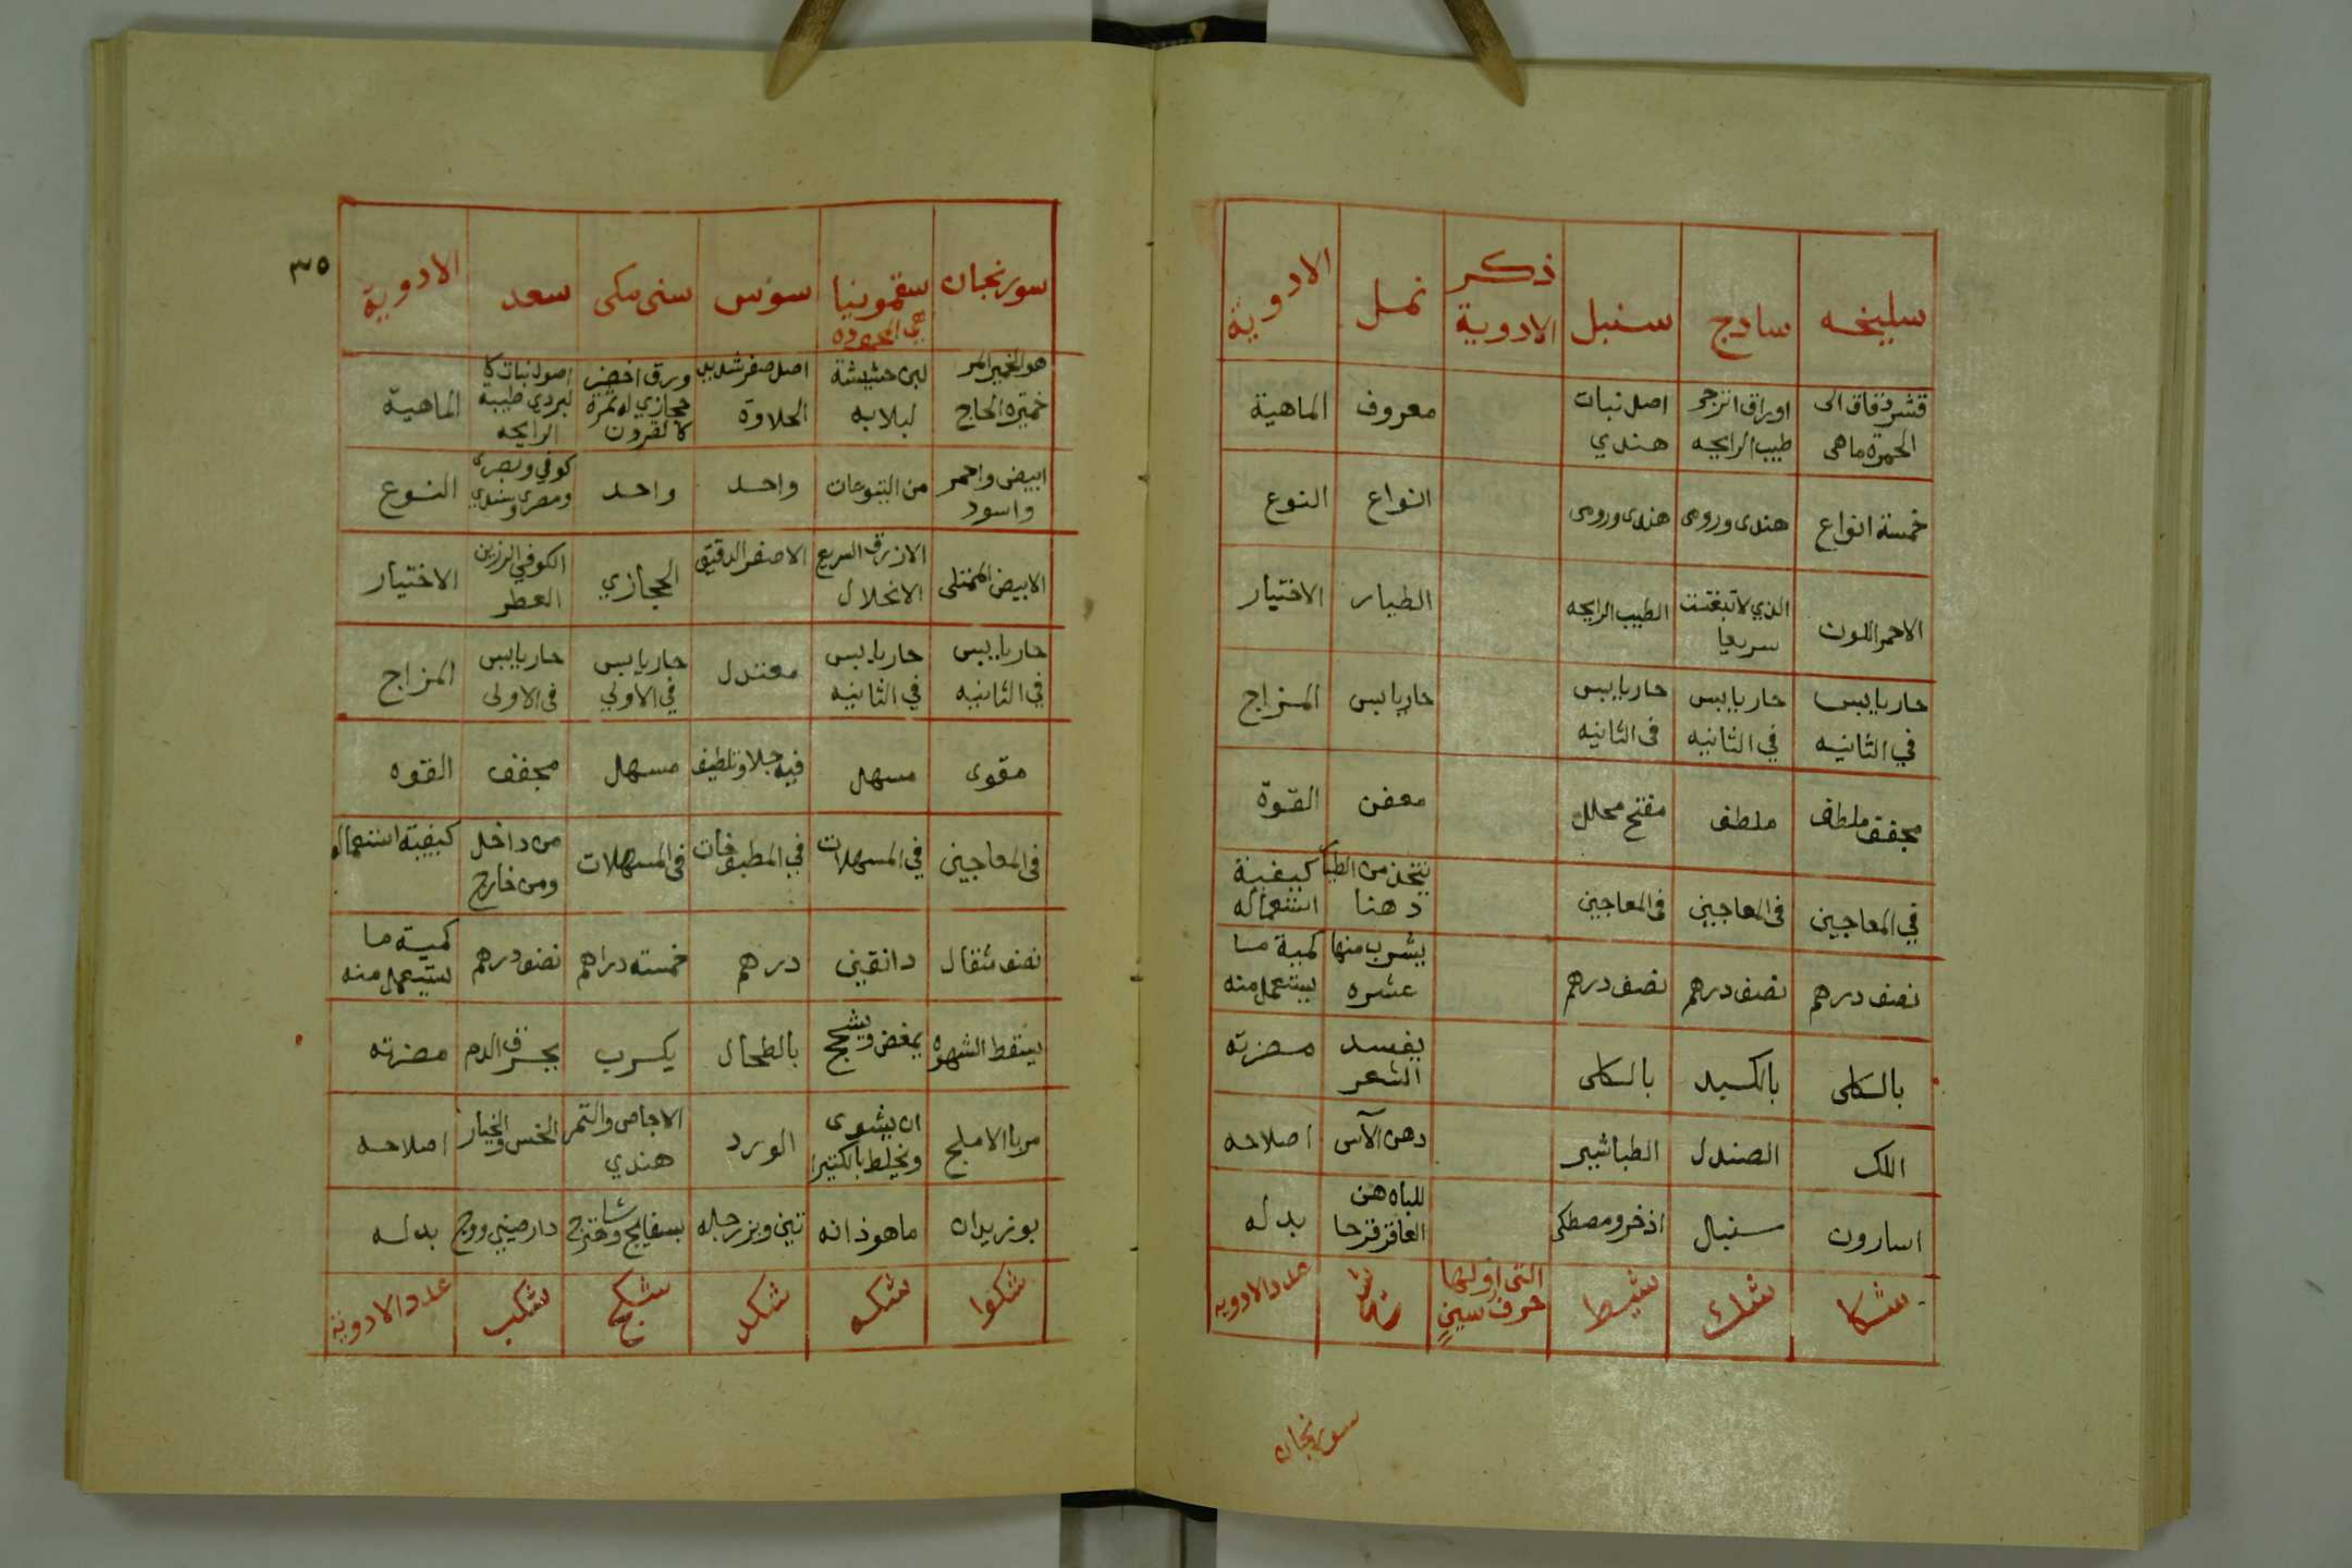 سليخه سادج سنبل ذكر الادوية نمل الادوية
قشر دقاق الى الحمرة ماهى
اوراق اترجر طيب الرايحه
اصل نبات هندي
معروف
الماهية
خمسة انواع
هندى ورومى
هندى ورومى
انواع
النوع
الاحمر اللون
الذي لا تبفتت سريعا
الطيب الرايحه
الطيار
الاختيار
حار يابس في الثانيه
حار يابس في الثانيه
حار يابس فى الثانيه
حار يابس
المزاج
مجفف ملطف
ملطف
مفتح محلل
معفن
القوة
في المعاجين
فى المعاجين
فى المعاجين
يتخذ من الطيا دهنا
كيفية استعماله
نصف درهم
نصف درهم
نصف درهم
يشرب منها عشره
كمية ما يستعمل منه
بالكلى
بالكبد
بالكلى
يفسد الشعر
مضرته
اللك
الصندل
الطباشير
دهن الآس
اصلاحه
اسارون
سنبال
اذخر ومصطكى
للباه هن العاقرقرحا
بدله
شكا
شك
شيط
التى اولها حرف سين
عدد الادويه
سورنجان
٣٥
سورنجان سقمونيا هي المحموده سوس سنى مكى سعد الادوية
خميرة الحاج
لبن حشيشة لبلابه
اصل صفر شديد الحلاوة
ورق اخضر حجازي له ثمرة كالقرون
اصول نبات كا لبردي طيبة الرايحه
الماهية
ابيض واحمر واسود
من اليتوعات
واحد
واحد
كوفي وبصرى ومصرى وهندي
النوع
الابيض الممتلى
الازرق السريع الانحلال
الاصفر الدقيق
الحجازي
الكوفي الرزين العطر
الاختيار
حار يابس في الثانيه
حار يابس في الثانيه
معتدل
حار يابس في الاولي
حار يابس فى الاولى
المزاج
مقوى
مسهل
فيه جلا وتلطيف
مسهل
مجفف
القوه
فى المعاجين
في المسهلات
في المطبوخات
فى المسهلات
من داخل ومن خارج
كيفية استعماله
نصف مثقال
دانقين
درهم
خمسة دراهم
نصف درهم
كمية ما يستعمل منه
يسقط الشهوه
يمغص ويسحج
بالطحال
يكرب
يحرق الدم
مضرته
مربا الاملج
ان يشوى ويخلط بالكثيرا
الورد
الاجاص والتمر هندي
الخس والخيار
اصلاحه
بوزيدان
ماهوذانه
تين وبزر رجله
دار صيني ووج
بدله
شكوا
شكه
شكد
شكج
شكب
عدد الادوية